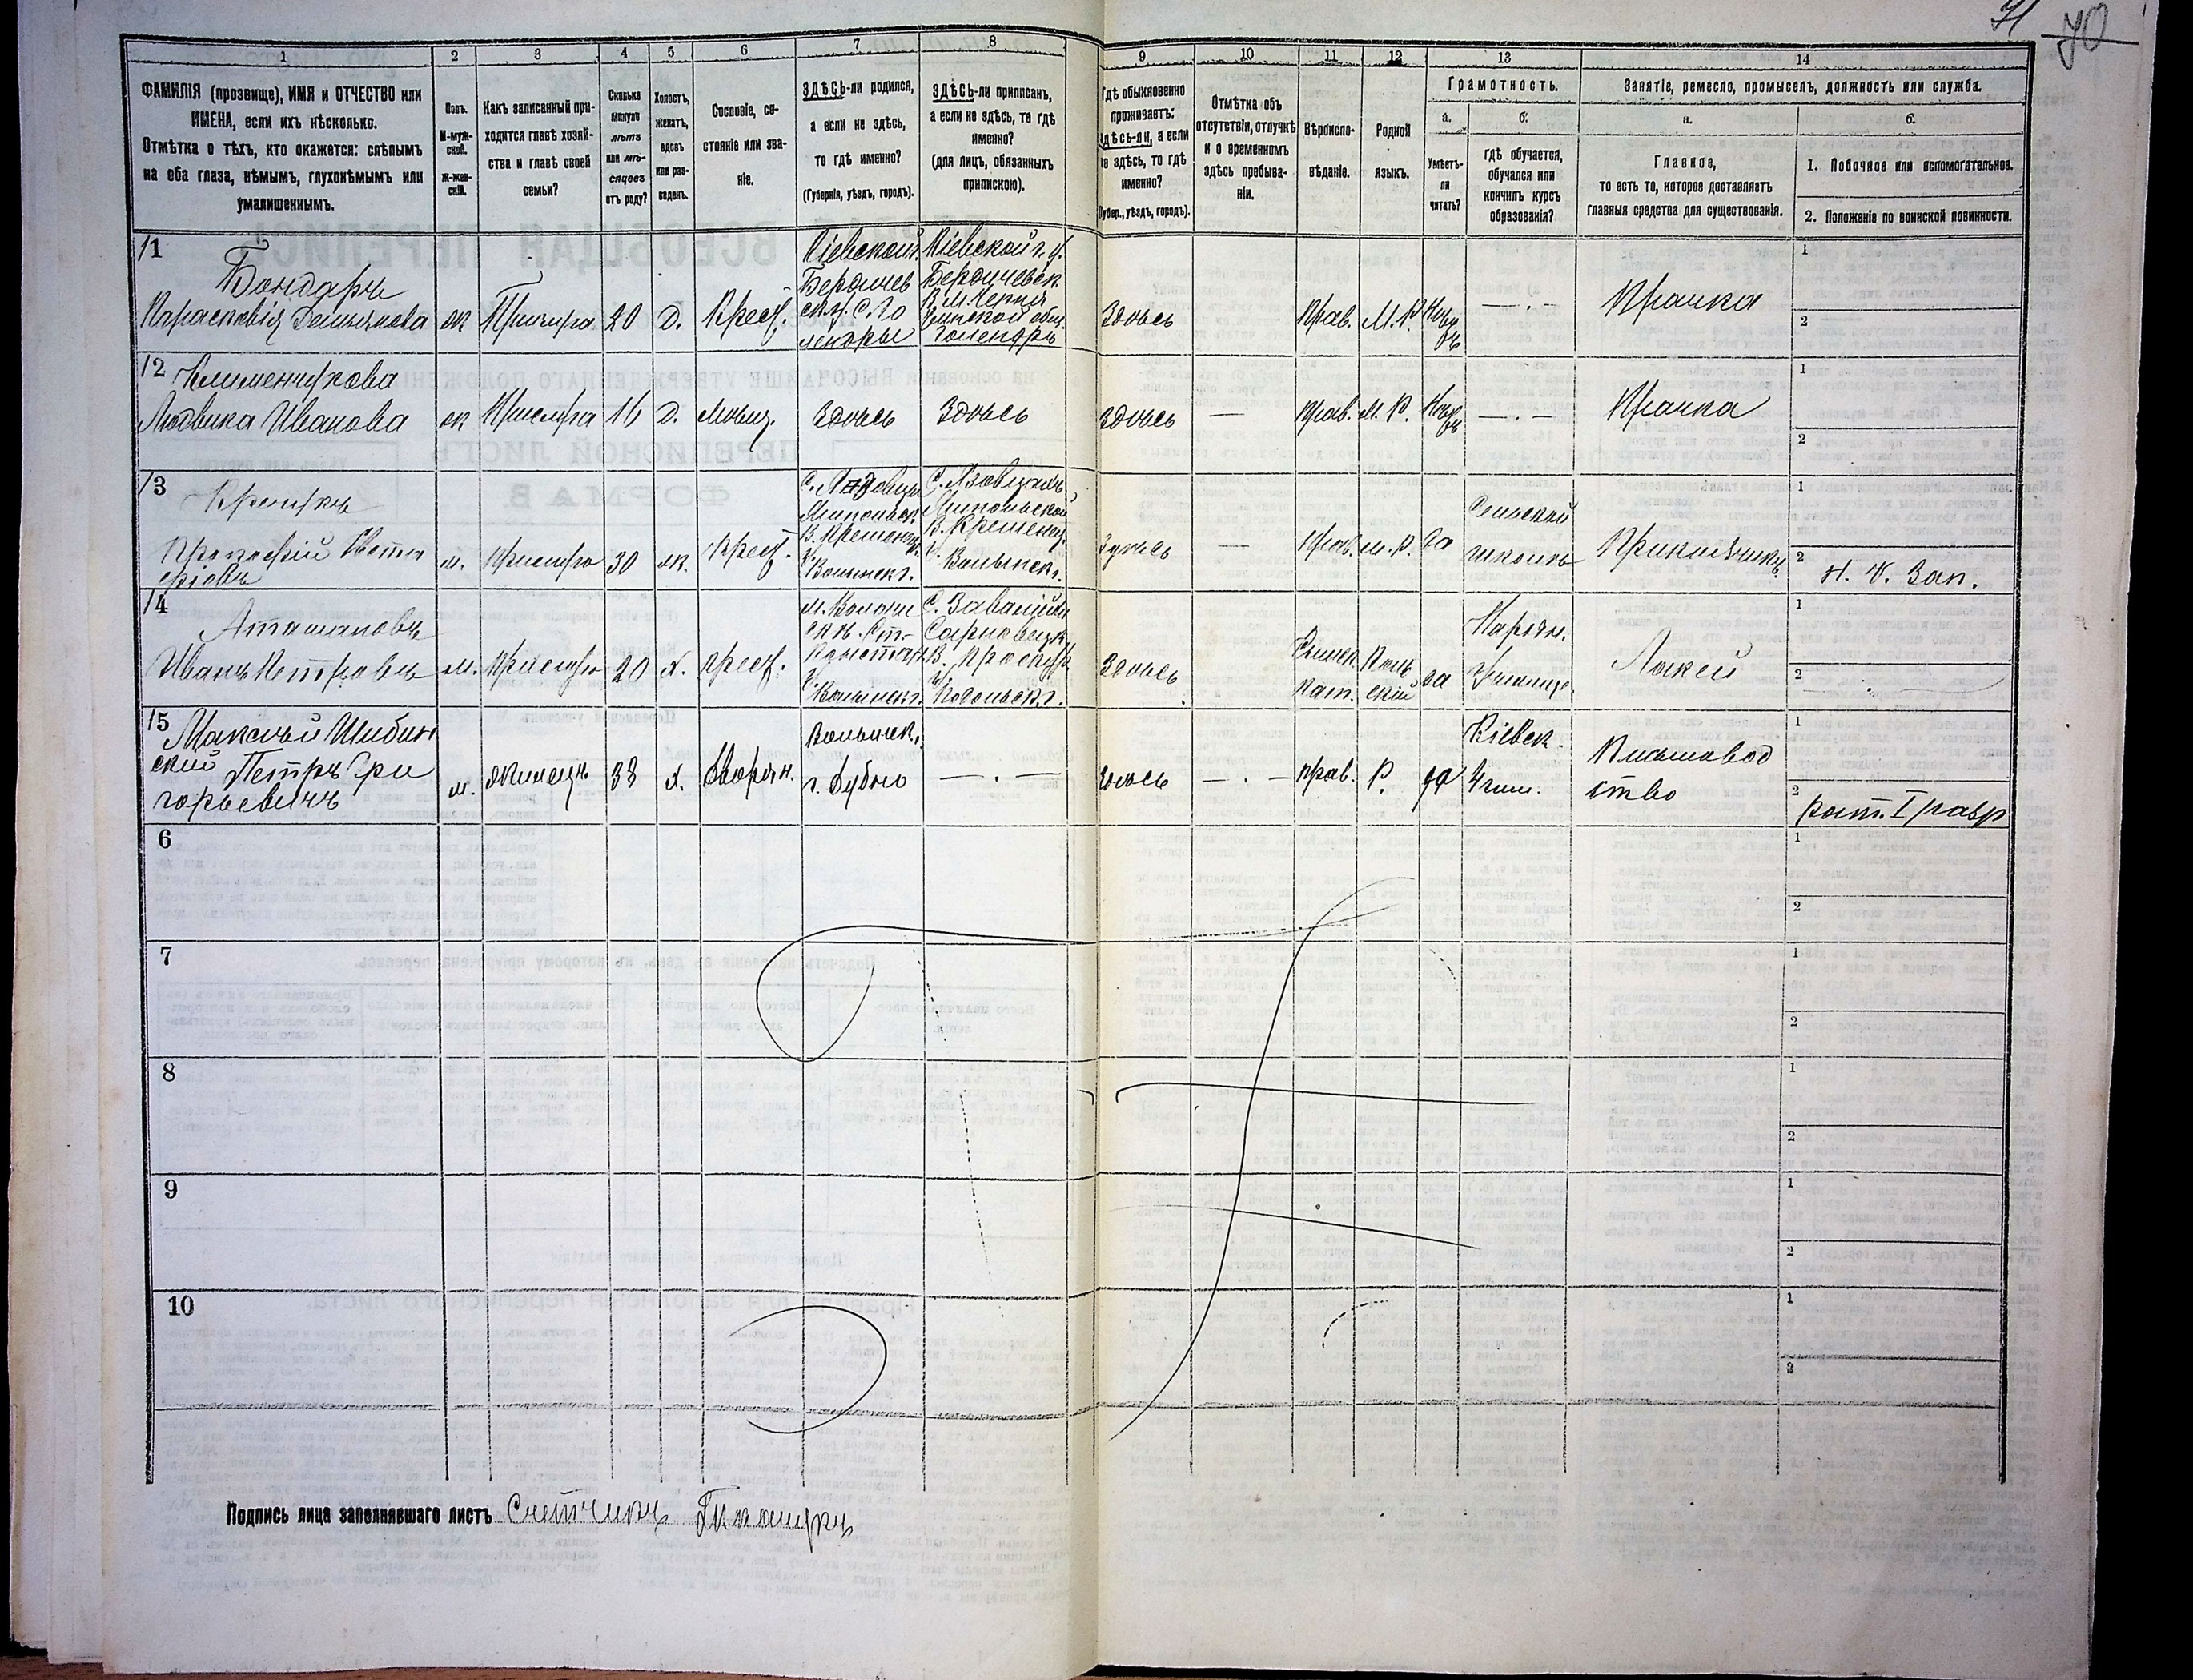 71 70
1 2 3 4 5 6 7 8 9 10 11 12 13 14
ФАМИЛІЯ (прозвище), ИМЯ и ОТЧЕСТВО или
ИМЕНА, если ихъ нѣсколько.
Отмѣтка о тѣхъ, кто окажется: слѣпымъ
на оба глаза, нѣмымъ, глухонѣмымъ или
умалишеннымъ.
Полъ.
М-муж-
ской.
ж-жен-
скій.
Какъ записанный при-
ходится главѣ хозяй-
ства и главѣ своей
семьи?
Сколько
минуло
лѣтъ
или мѣ-
сяцевъ
отъ роду?
Холостъ,
женатъ,
вдовъ
или раз-
веденъ.
Сословіе, со-
стояніе или зва-
ніе.
ЗДѢСЬ-ли родился,
а если не здѣсь,
то гдѣ именно?
(Губернія, уѣздъ, городъ).
ЗДѢСЬ-ли приписанъ,
а если не здѣсь, то гдѣ
именно?
(для лицъ, обязанныхъ
припискою).
Гдѣ обыкновенно
проживаетъ:
здѣсь-ли, а если
не здѣсь, то гдѣ
именно?
(Губер., уѣздъ, городъ).
Отмѣтка объ
отсутствіи, отлучкѣ
и о временномъ
здѣсь пребыва-
ніи.
Вѣроиспо-
вѣданіе.
Родной
языкъ.
Грамотность.
а.
Умѣетъ-
ли
читать?
б.
гдѣ обучается,
обучался или
кончилъ курсъ
образованія?
Занятіе, ремесло, промыселъ, должность или служба.
а.
Главное,
то есть то, которое доставляетъ
главныя средства для существованія.
б.
1. Побочное или вспомогательное.
2. Положеніе по воинской повинности.
11
Бондарь
Парасковія Демьянова
ж
Прислуга
20
Д.
Крест.
Кіевской г.
Бердичев
ск. у. С. Го
лендры
Кіевской г. у.
Бердичевск.
Голендръ
Здѣсь
Прав.
М. Р.
— . —
Прачка
1
2
12 Клименчукова
Людвика Иванова
ж
Прислуга
16
Д.
Мѣщ.
Здѣсь
Здѣсь
Здѣсь
—
Прав.
М. Р.
— . —
Прачка
1
2
13
м.
Прислуга
30
ж.
Крест.
В. Кременец.
у.
Волынск г.
В. Кременец.
у.
Волынск г.
Здѣсь
—
Прав.
м. р.
да
Сельской
школѣ
Прикащикъ
1
2 Н. Ч. Зап.
14
Иванъ Петровъ
м.
Прислуга
20
Х.
Крест.
м. Волочи
скъ. Ст.-
Констант.
у.
Волынск г.
В. Проскур.
у.
Подольск г.
Здѣсь
Римск.
кат.
Поль
скій
да
Народн.
Училище
Лакей
1
2 — . —
15 Максимъ Шибин
ский Петръ Гри
горьевичъ
м.
жилецъ
33
Х.
Дворян.
Волынск.
г. Дубно
— . —
Здѣсь
— . —
прав.
Р.
да
Кіевск.
4 гим.
Письмовод
ство
1
2 рат. I разр
6 1 2
7 1 2
8 1 2
9 1 2
10 1 2
Подпись лица заполнявшаго листъ Счетчикъ Ткачукъ